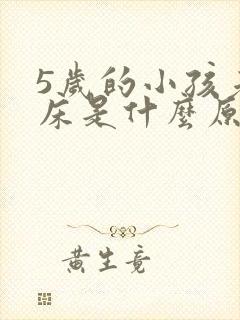 5歲的小孩
床是什麼原
黄生竟